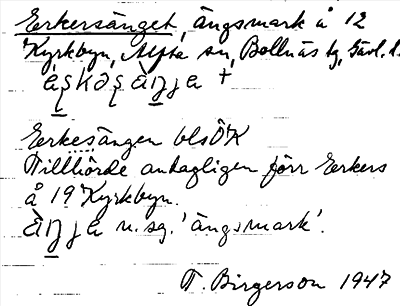 Erkersänget, ängsmark å 12
Kyrkbyn, Alfta sn, Bollnäs tg, Gävl. l.
Erkesängen blsÖK
Tillhörde antagligen förr Erkers
å 19 Kyrkbyn.
n. sg. 'ängsmark'.
T. Birgerson 1947